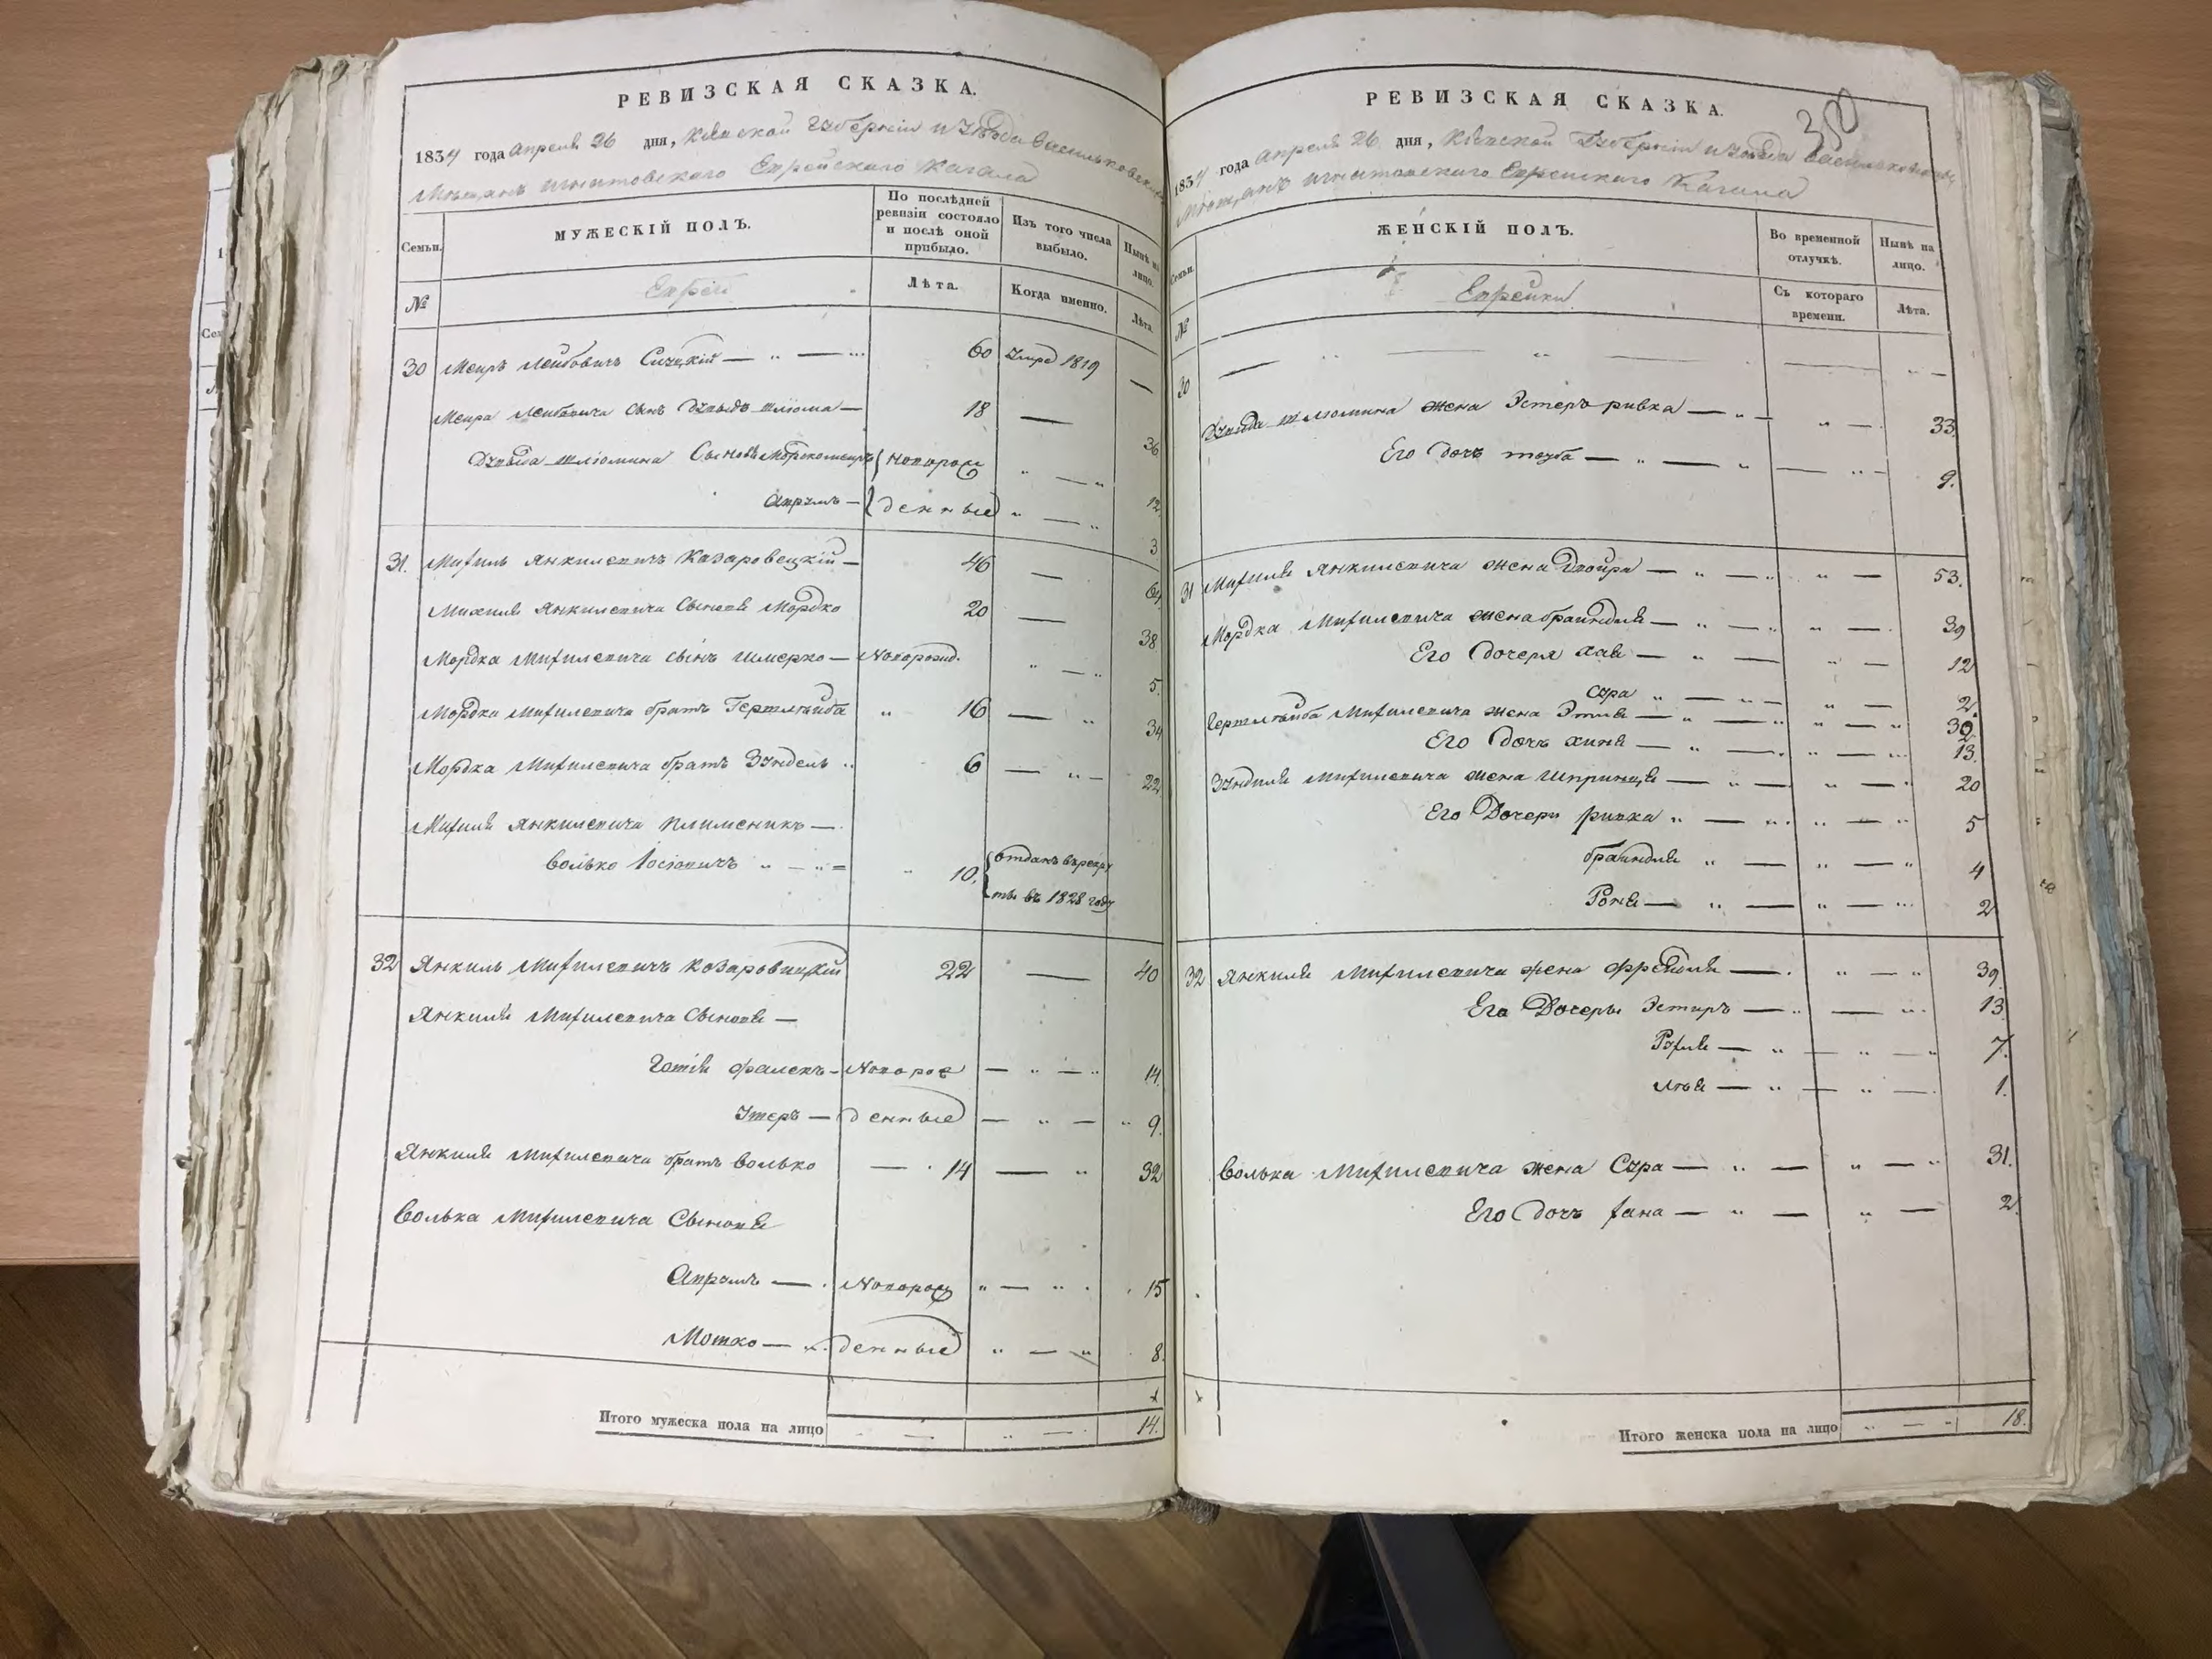 РЕВИЗСКАЯ СКАЗКА.
1834 года Апреля 26 дня, Кіевской Губерніи и Уѣзда Васильковскихъ
Мѣщанъ Игнатовского Еврейскаго Кагала
Семьи.
МУЖЕСКІЙ ПОЛЪ.
По послѣдней ревизіи состояло и послѣ оной прибыло.
Изъ того числа выбыло.
Нынѣ на лицо.
№
Евреи
Лѣта.
Когда именно.
Лѣта.
30 Меиръ Лейбовичъ 60 Умре 1819
Меира Лейбовича сынъ Дувыдъ Шлюма 18 36
Дувыда Шлюмина Сыновья новорож 12
Апрумъ денные 3
31. Михель Янкилевичъ Казаровецкій 46 64
Михиля Янкилевича Сыновя Мордко 20 38
Мордка Михилевича сынъ Шмерко Новорожд. 5.
Мордка Михилевича братъ Гершлейба 16 34
Мордка Михилевича братъ Зундель 6 22
Михиля Янкилевича племеникъ
Волько Іосіовичъ 10. отданъ въ рекру
ты въ 1828 году
32 Янкиль Михилевичъ Козаровицкій 22 40
Янкиля Михилевича Сыновя
фалекъ Новорож 14.
Утеръ денные 9.
Янкиля Михилевича братъ Волько 14 32
Волька Михилевича Сыновя
Апрумъ Новорож 15
Мошко денные 8.
Итого мужеска пола на лицо 14.
РЕВИЗСКАЯ СКАЗКА.
1834 года Апреля 26 дня, Кіевской Губерніи и Уѣзда Васильковскихъ
Мѣщанъ Игнатовского Еврейскаго Кагала
Семьи.
ЖЕНСКІЙ ПОЛЪ.
Во временной отлучкѣ.
Нынѣ на лицо.
№
Еврейки
Съ котораго времени.
Лѣта.
30
Дувыда Шлюмина жена Эстеръ ривка 33.
Его дочь тауба 9.
31 Михиля Янкилевича жена Двойра 53.
Мордка Михилевича жена браиндля 39
Его дочеря хая 12
Сура 2.
Гершлейба Михилевича жена Этля 30
Его дочь хиня 13.
Зунделя Михилевича жена Шпринця 20
Его Дочери ривка 5
браиндля 4
Роня 2
32 Янкиля Михилевича жена фрейдля 39
Его Дочеры Эстиръ 13
Рухля 7.
Лея 1.
Волька Михилевича жена Сура 31.
Его дочь хана 2.
Итого женска пола на лицо 18.